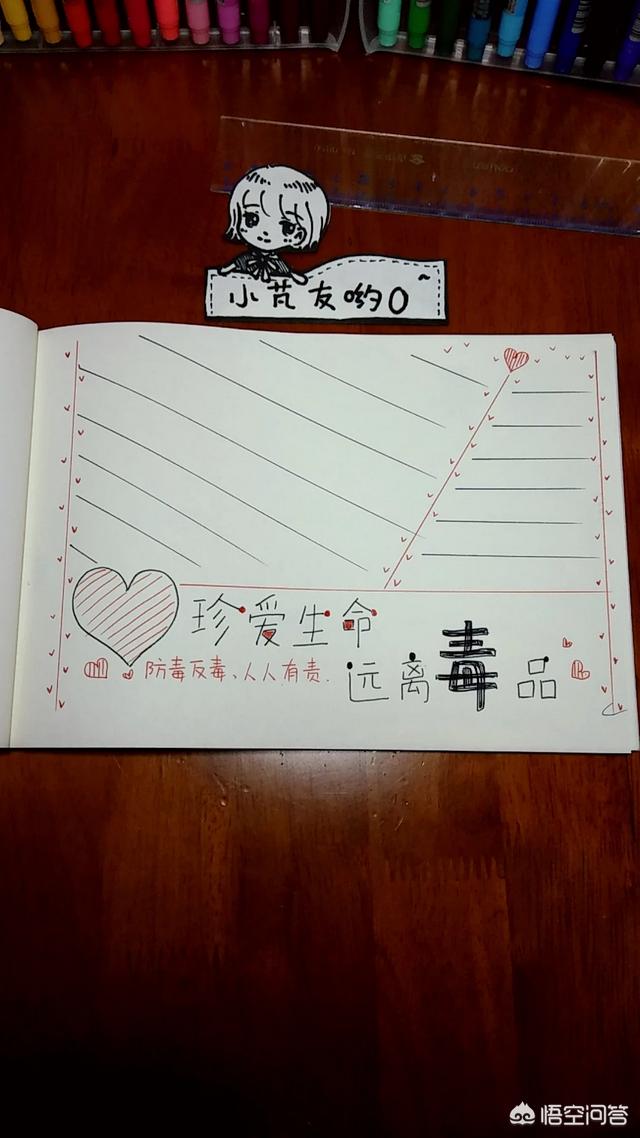 小芃友哟O~
珍爱生命
防毒反毒、人人有责.
远离毒品
悟空问答